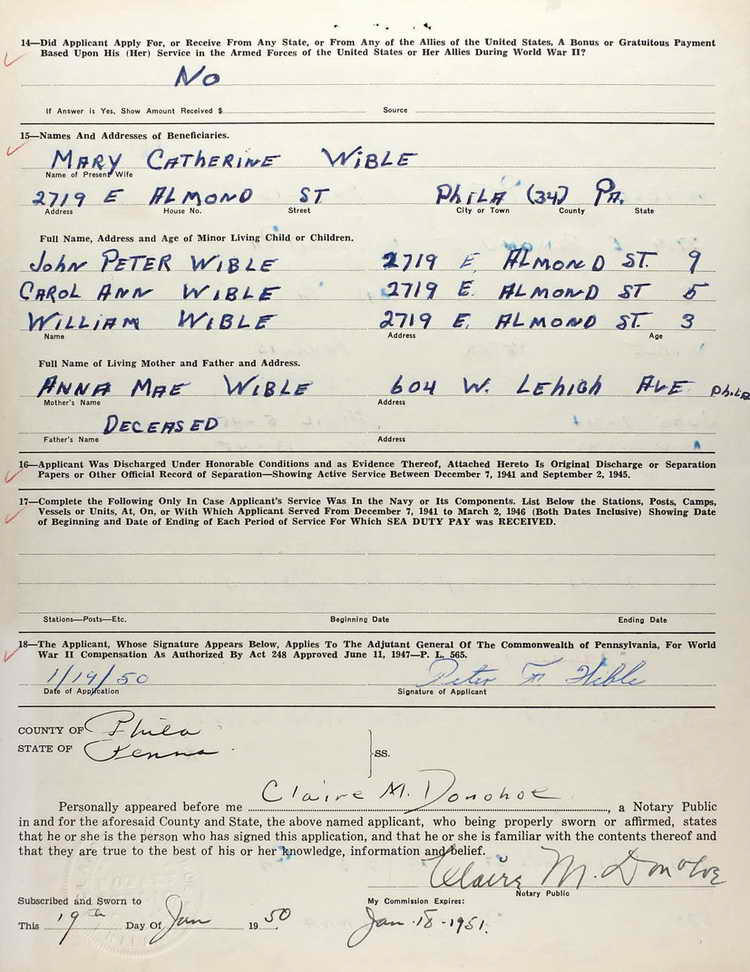 14—Did Applicant Apply For, or Receive From Any State, or From Any of the Allies of the United States, A Bonus or Gratuitous Payment
Based Upon His (Her) Service in the Armed Forces of the United States or Her Allies During World War II?
No
If Answer is Yes, Show Amount Received $ Source
15—Names And Addresses of Beneficiaries.
MARY CATHERINE WIBLE
Name of Present Wife
2719 E ALMOND ST PHILA (34) PA.
Address House No. Street City or Town County State
Full Name, Address and Age of Minor Living Child or Children.
JOHN PETER WIBLE 2719 E. ALMOND ST. 9
CAROL ANN WIBLE 2719 E. ALMOND ST 5
WILLIAM WIBLE 2719 E. ALMOND ST. 3
Name Address Age
Full Name of Living Mother and Father and Address.
ANNA MAE WIBLE 604 W. LEHIGH AVE PHILA
Mother's Name Address
DECEASED
Father's Name Address
16—Applicant Was Discharged Under Honorable Conditions and as Evidence Thereof, Attached Hereto Is Original Discharge or Separation
Papers or Other Official Record of Separation—Showing Active Service Between December 7, 1941 and September 2, 1945.
17—Complete the Following Only In Case Applicant's Service Was In the Navy or Its Components. List Below the Stations, Posts, Camps,
Vessels or Units, At, On, or With Which Applicant Served From December 7, 1941 to March 2, 1946 (Both Dates Inclusive) Showing Date
of Beginning and Date of Ending of Each Period of Service For Which SEA DUTY PAY was RECEIVED.
Stations—Posts—Etc. Beginning Date Ending Date
18—The Applicant, Whose Signature Appears Below, Applies To The Adjutant General Of The Commonwealth of Pennsylvania, For World
War II Compensation As Authorized By Act 248 Approved June 11, 1947—P. L. 565.
1/19/50 Peter M Wible
Date of Application Signature of Applicant
COUNTY OF Phila
STATE OF Penna. SS.
Personally appeared before me Claire M. Donohoe, a Notary Public
in and for the aforesaid County and State, the above named applicant, who being properly sworn or affirmed, states
that he or she is the person who has signed this application, and that he or she is familiar with the contents thereof and
that they are true to the best of his or her knowledge, information and belief.
Claire M. Donohoe
Notary Public
Subscribed and Sworn to My Commission Expires:
This 19th Day Of Jan 1950 Jan. 18-1951.